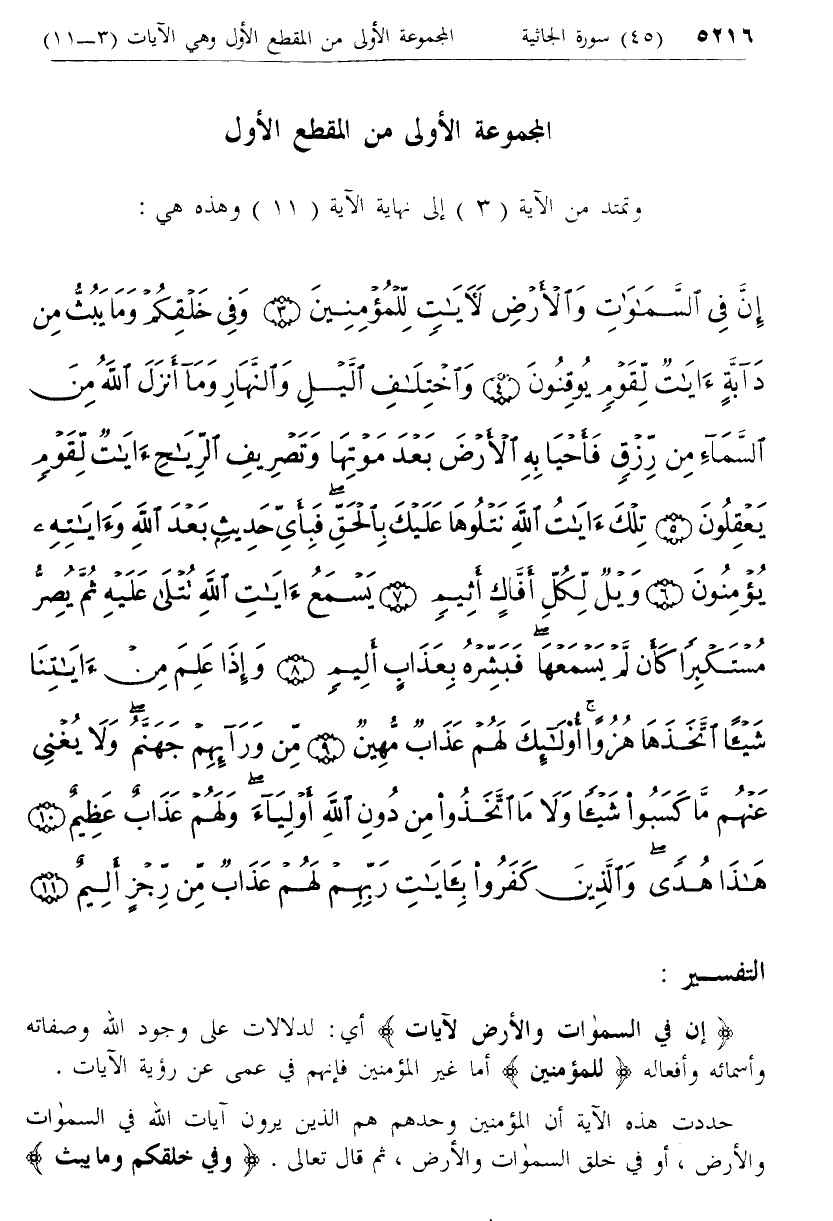 ٥٢١٦ (٤٥) سورة الجاثية المجموعة الأولى من المقطع الأول وهي الآيات (٣ــ١١)
المجموعة الأولى من المقطع الأول
وتمتد من الآية ( ٣ ) إلى نهاية الآية ( ١١ ) وهذه هي :
إِنَّ فِي ٱلسَّمَٰوَٰتِ وَٱلْأَرْضِ لَءَايَٰتٍ لِّلْمُؤْمِنِينَ ۝٣ وَفِي خَلْقِكُمْ وَمَا يَبُثُّ مِن
دَآبَّةٍ ءَايَٰتٌ لِّقَوْمٍ يُوقِنُونَ ۝٤ وَٱخْتِلَٰفِ ٱلَّيْلِ وَٱلنَّهَارِ وَمَآ أَنزَلَ ٱللَّهُ مِنَ
ٱلسَّمَآءِ مِن رِّزْقٍ فَأَحْيَا بِهِ ٱلْأَرْضَ بَعْدَ مَوْتِهَا وَتَصْرِيفِ ٱلرِّيَٰحِ ءَايَٰتٌ لِّقَوْمٍ
يَعْقِلُونَ ۝٥ تِلْكَ ءَايَٰتُ ٱللَّهِ نَتْلُوهَا عَلَيْكَ بِٱلْحَقِّ ۖ فَبِأَيِّ حَدِيثٍۭ بَعْدَ ٱللَّهِ وَءَايَٰتِهِۦ
يُؤْمِنُونَ ۝٦ وَيْلٌ لِّكُلِّ أَفَّاكٍ أَثِيمٍ ۝٧ يَسْمَعُ ءَايَٰتِ ٱللَّهِ تُتْلَىٰ عَلَيْهِ ثُمَّ يُصِرُّ
مُسْتَكْبِرًا كَأَن لَّمْ يَسْمَعْهَا ۖ فَبَشِّرْهُ بِعَذَابٍ أَلِيمٍ ۝٨ وَإِذَا عَلِمَ مِنْ ءَايَٰتِنَا
شَيْـًٔا ٱتَّخَذَهَا هُزُوًا ۚ أُوْلَٰٓئِكَ لَهُمْ عَذَابٌ مُّهِينٌ ۝٩ مِّن وَرَآئِهِمْ جَهَنَّمُ ۖ وَلَا يُغْنِي
عَنْهُم مَّا كَسَبُوا۟ شَيْـًٔا وَلَا مَا ٱتَّخَذُوا۟ مِن دُونِ ٱللَّهِ أَوْلِيَآءَ ۖ وَلَهُمْ عَذَابٌ عَظِيمٌ ۝١٠
هَٰذَا هُدًى ۖ وَٱلَّذِينَ كَفَرُوا۟ بِـَٔايَٰتِ رَبِّهِمْ لَهُمْ عَذَابٌ مِّن رِّجْزٍ أَلِيمٌ ۝١١
التفسير :
﴿ إن في السمٰوات والأرض لآيات ﴾ أي: لدلالات على وجود الله وصفاته
وأسمائه وأفعاله ﴿ للمؤمنين ﴾ أما غير المؤمنين فإنهم في عمى عن رؤية الآيات .
حددت هذه الآية أن المؤمنين وحدهم هم الذين يرون آيات الله في السمٰوات
والأرض ، أو في خلق السمٰوات والأرض ، ثم قال تعالى . ﴿ وفي خلقكم وما يبث ﴾